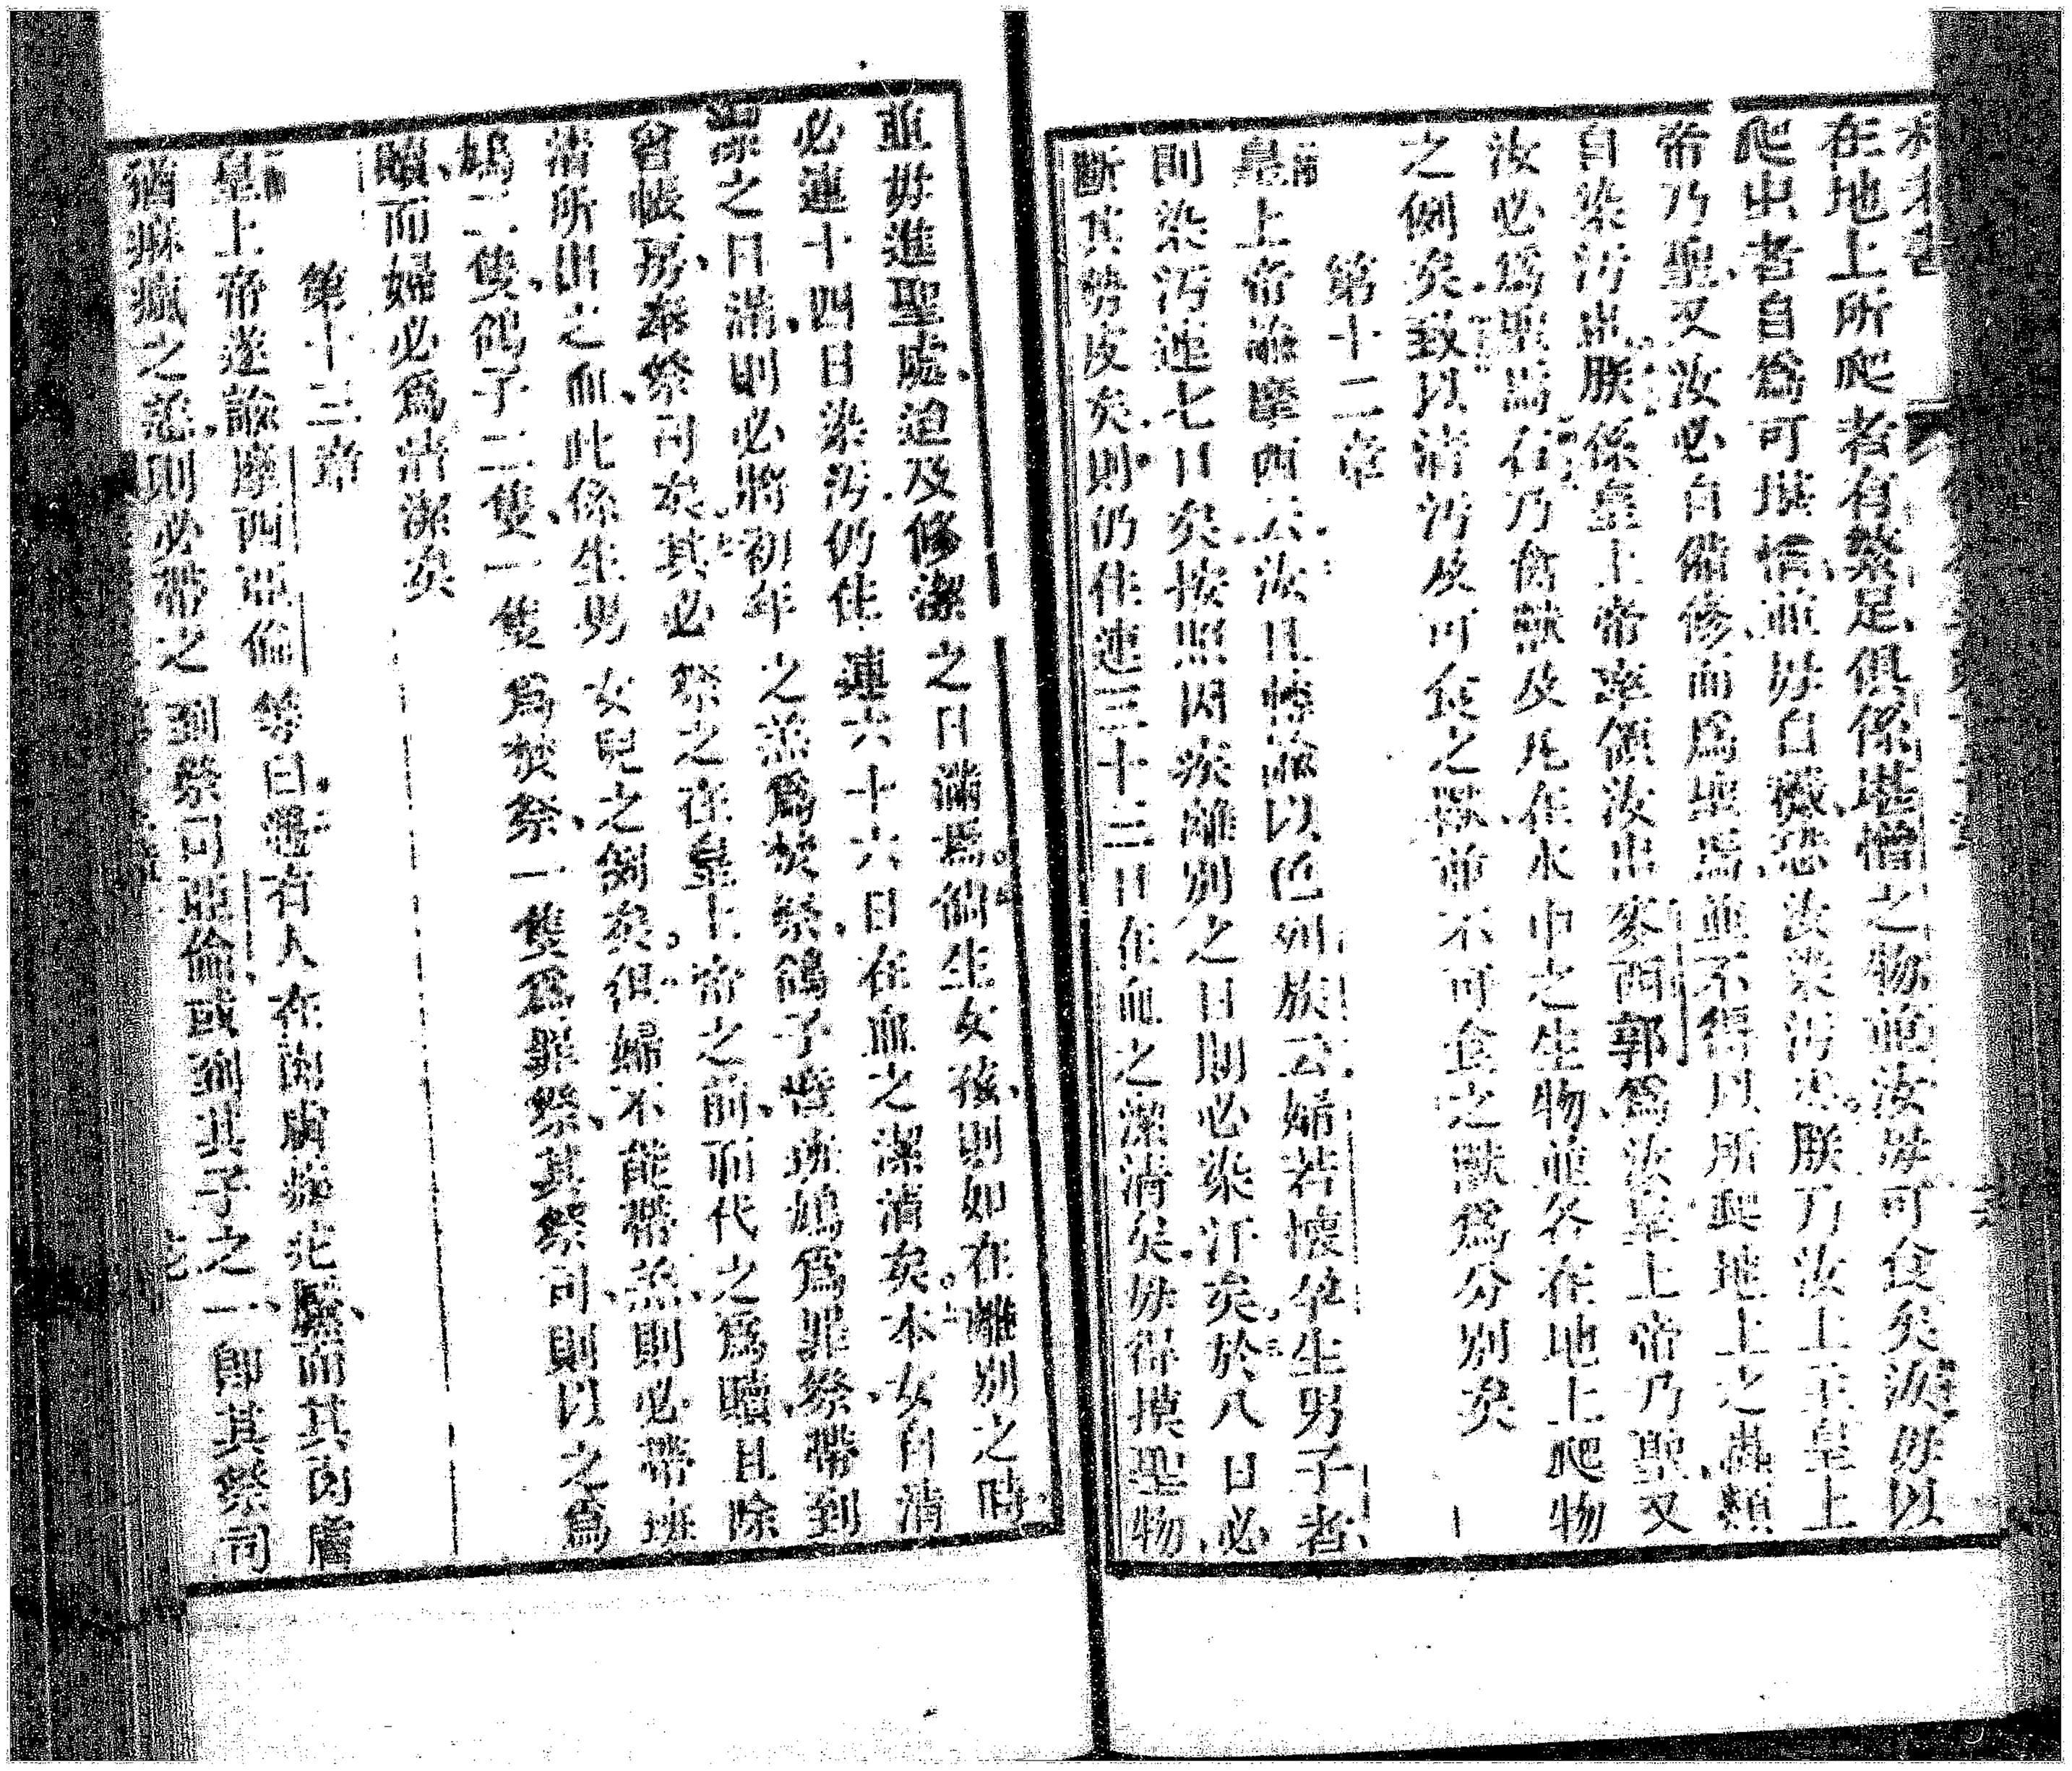 在地上所爬者有衆足俱係堪憎之物並汝毋可食矣汝毋以
爬出者自爲可堪憎並毋自穢恐汝染污也朕乃汝上主皇上
帝乃聖又汝必自備修而爲聖焉並不得以所爬地上之蟲類
自染污也朕係皇上帝率領汝出麥西郭爲汝皇上帝乃聖又
汝必爲聖焉右乃禽獸及凡在水中之生物並各在地上爬物
之例矣致以清污及可食之獸並不可食之獸爲分別矣
第十二章
皇上帝諭摩西云汝且傳諭以色列族云婦若懷孕生男子者
則染污連七日矣按照因疾離別之日期必染汙矣於八日必
斷其勢皮矣則仍住連三十三日在血之潔清矣毋得摸聖物
並毋進聖處迫及修潔之日滿焉倘生女孩則如在離別之時
必連十四日染污仍住連六十六日在血之潔清矣本女自清
潔之日滿則必將初年之羔爲焚祭鴿子或班鳩爲罪祭帶到
會帳房奉祭司矣其必祭之在皇上帝之前而代之爲贖且除
清所出之血此係生男女兒之例矣但婦不能帶羔則必帶班
鳩二隻鴿子二隻一隻爲焚祭一隻爲罪祭其祭司則以之爲
贖而婦必爲清潔矣
第十三章
皇上帝遂諭摩西亞倫等曰遇有人在肉膚 而其肉膚
猶痳瘋之恙則必帶之到祭司亞倫或到其子之一即其祭司